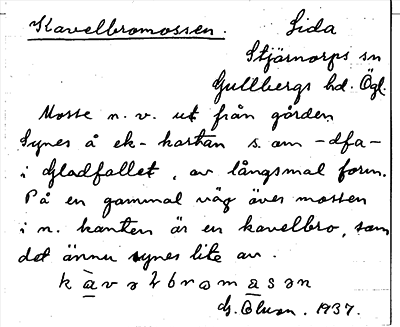 Kavelbromossen. Sida
Stjärnorps sn
Gullbergs hd. Ögl.
Mosse n. v. ut från gården
Synes å ek-kartan s. om -dfa-
i Gladfallet, av långsmal form.
På en gammal väg över mossen
i n. kanten är en kavelbro, som
det ännu synes lite av.
1937.